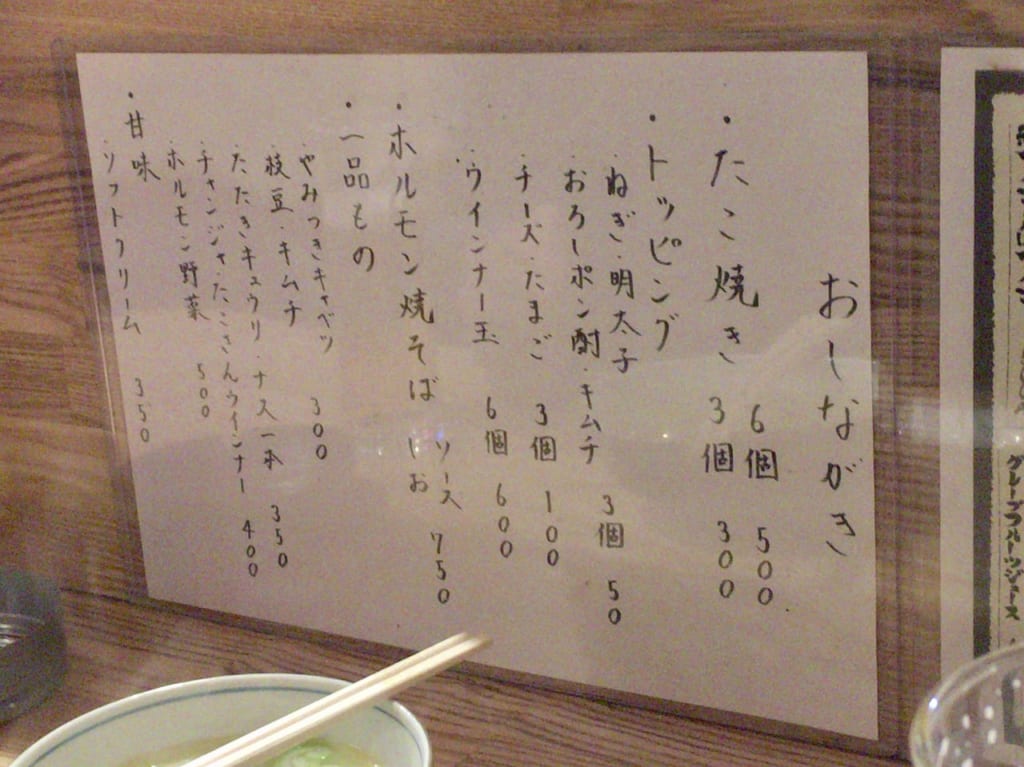 おしながき
・たこ焼き 6個 500
3個 300
・トッピング
・ねぎ・明太子
・おろしポン酢・キムチ 3個 50
・チーズ・たまご 3個 100
・ウインナー玉 6個 600
・ホルモン焼そば ソース
しお 750
・一品もの
・やみつきキャベツ 300
・枝豆・キムチ
・たたきキュウリ・ナス一本 350
・チャンジャ・たこさんウインナー 400
・ホルモン野菜 500
・甘味
・ソフトクリーム 350
グレープフルーツジュース